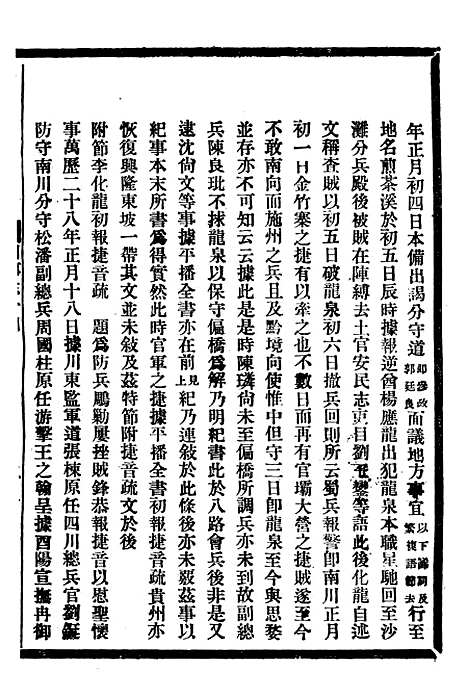 年正月初四日本備出謁分守道郎參政郭廷良面議地方事宜以下歸詞及繁複語節去行至
地名煎茶溪於初五日辰時據報逆酋楊應龍出犯龍泉本職星馳回至沙
灘分兵殿後被賊在陣縛去土官安民志吏目劉玉鑾等語此後化龍自述
文稱查賊以初五日破龍泉初六日撤兵回則所云蜀兵報警卽南川正月
初一日金竹寨之捷有以牽之也不數日而再有官壩大營之捷賊遂至今
不敢南向而施州之兵且及黔境向使惟中但守三日卽龍泉至今與思婺
並存亦不可知云云據此是是時陳璘尚未至偏橋所調兵亦未到故副總
兵陳良玭不捄龍泉以保守偏橋爲解乃明紀書此於八路會兵後非是又
逮沈尚文等事據平播全書亦在前見上紀乃連敘於此條後亦未覈茲事以
紀事本末所書爲得實然此時官軍之捷據平播全書初報捷音疏貴州亦
恢復興隆東坡一帶其文並未敘及茲特節附捷音疏文於後
附節李化龍初報捷音疏　題爲防兵鵰勦屢挫賊鋒恭報捷音以慰聖懷
事萬歷二十八年正月十八日據川東監軍道張棟原任四川總兵官劉綎
防守南川分守松潘副總兵周國柱原任游擊王之翰呈據酉陽宣撫冉御